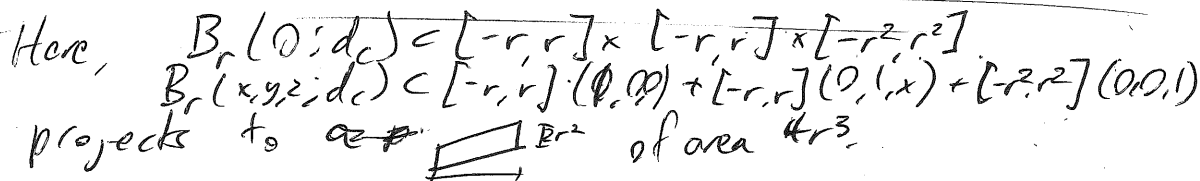 Here, B_r(0; d_c) ⊂ [-r, r] × [-r, r] × [-r², r²].
B_r(x,y,z; d_c) ⊂ [-r, r]·(1,0,0) + [-r, r](0,1,x) + [-r², r²](0,0,1)
projects to r² of area 4r³.